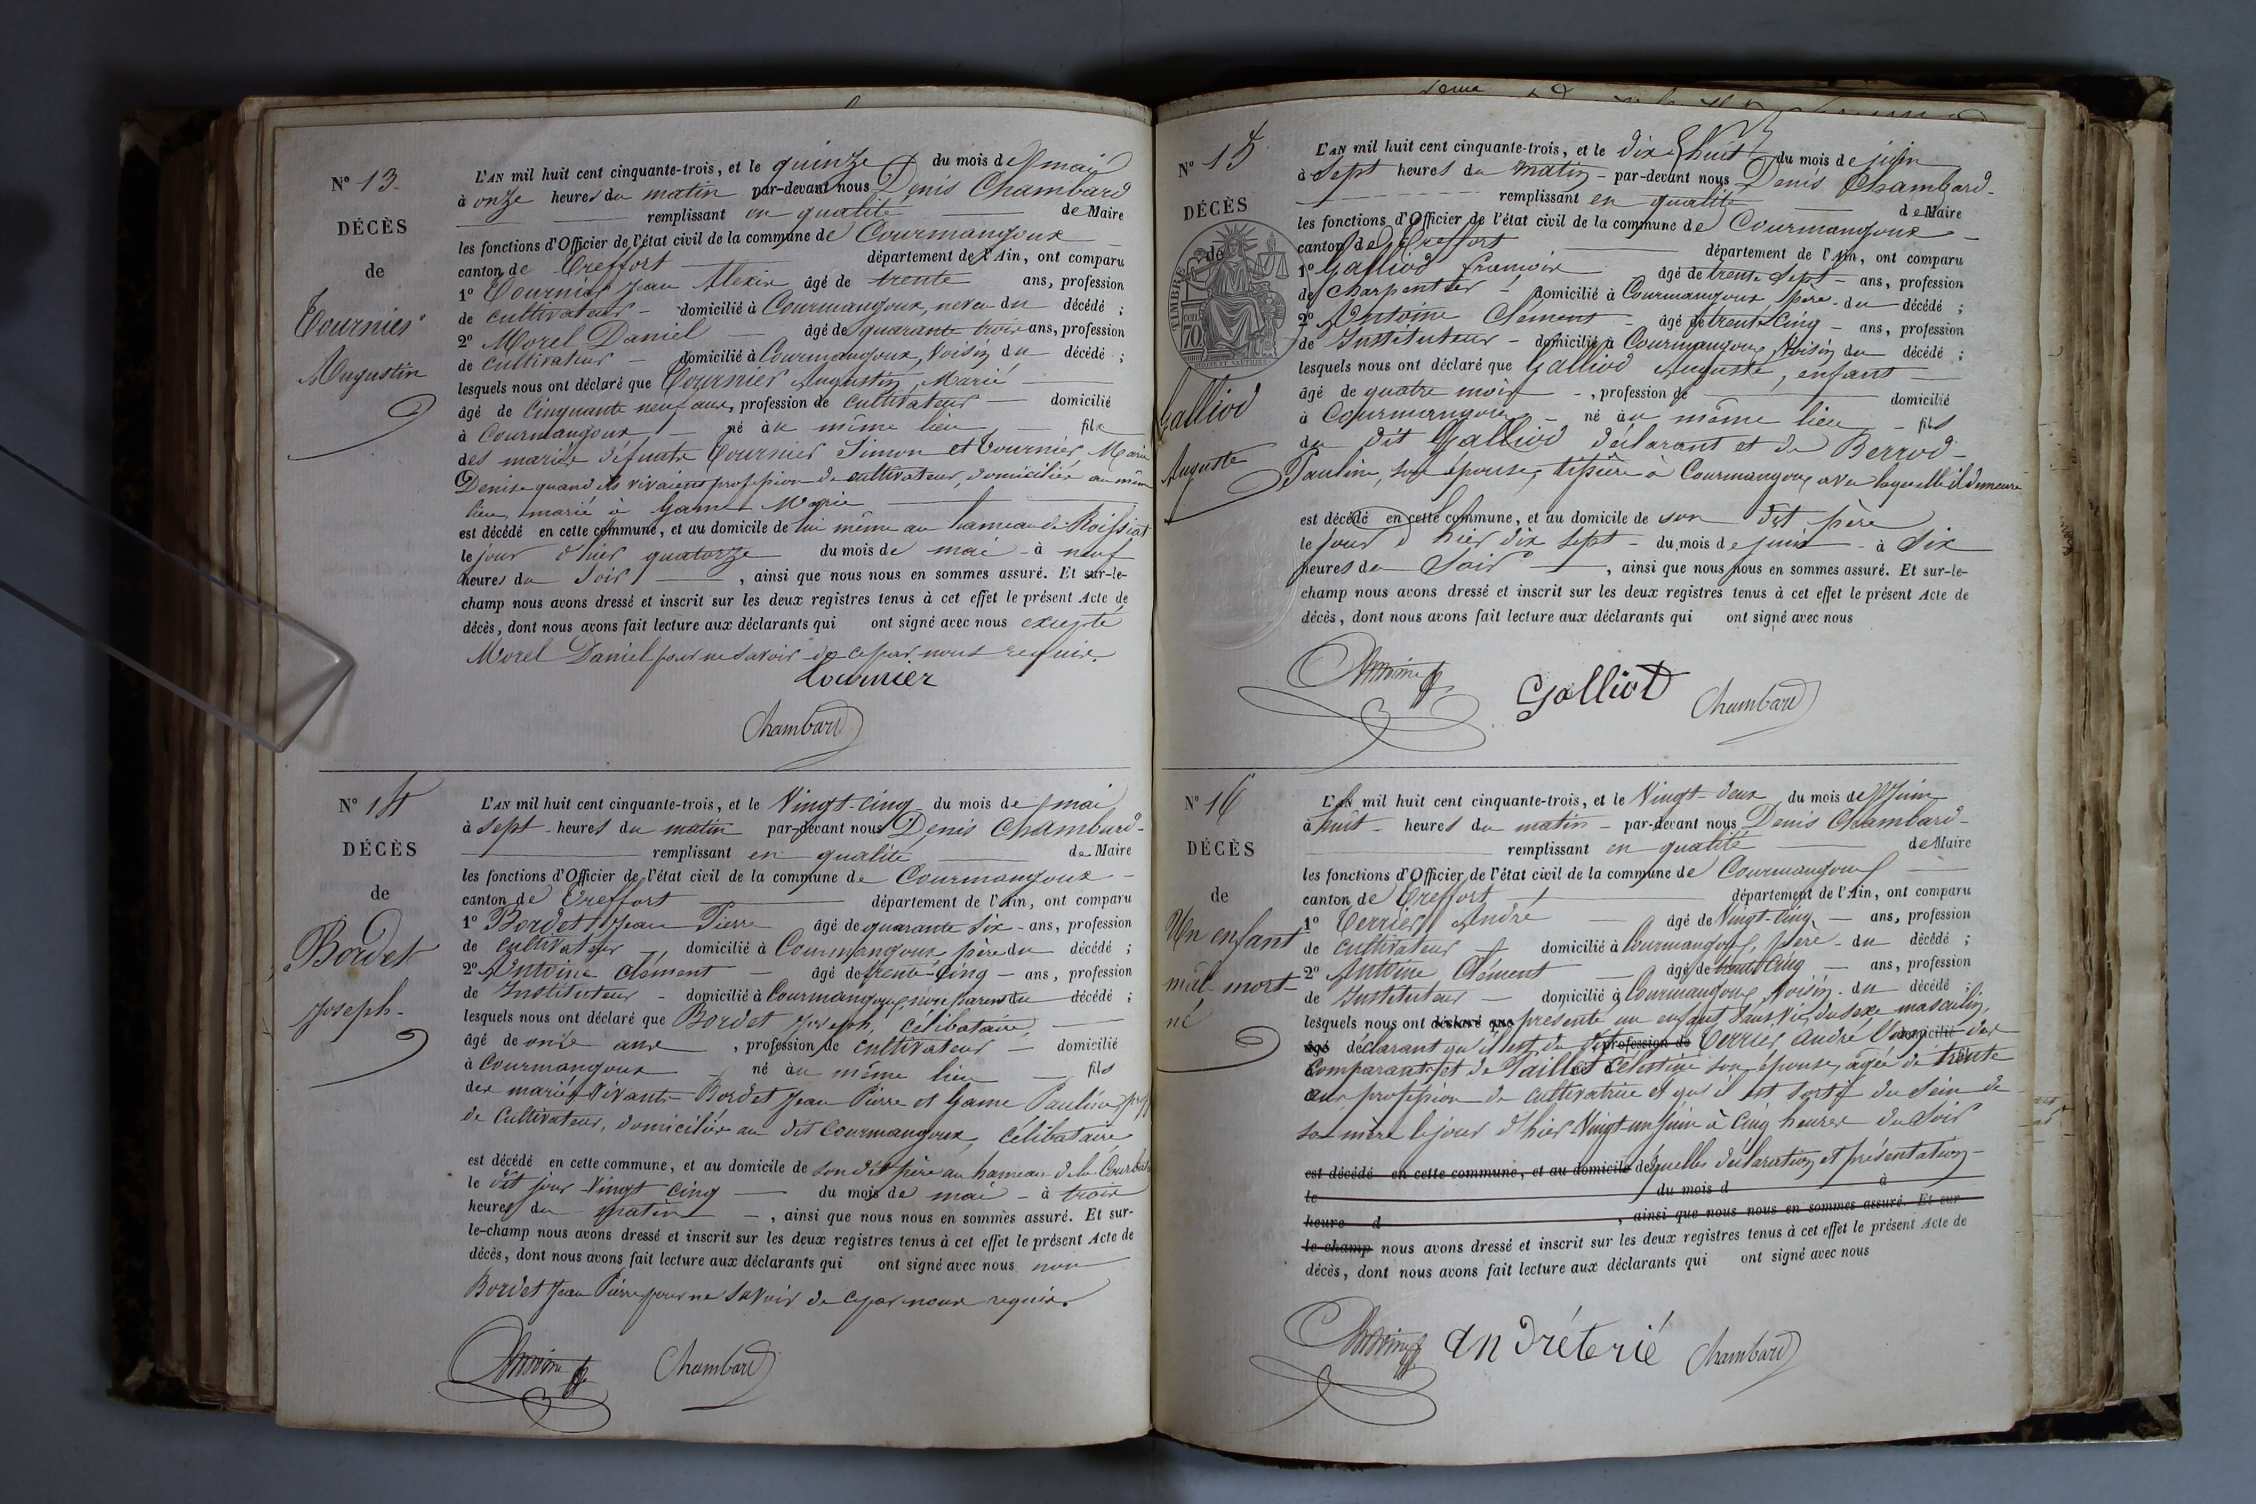 N° 13.
DÉCÈS
de
Tournier
Augustin
L'AN mil huit cent cinquante-trois, et le quinze du mois de mai
à onze heures du matin par-devant nous Denis Chambard
remplissant en qualité de Maire
les fonctions d'Officier de l'état civil de la commune de Courmangoux
canton de Treffort département de l'Ain, ont comparu
1° Tournier Jean Alexis âgé de trente ans, profession
de cultivateur - domicilié à Courmangoux, neveu du décédé ;
2° Morel Daniel âgé de quarante trois ans, profession
de cultivateur - domicilié à Courmangoux, voisin du décédé ;
lesquels nous ont déclaré que Tournier Augustin, Marié
âgé de cinquante neuf ans, profession de cultivateur domicilié
à Courmangoux né au même lieu fils
des mariés défunts Tournier Simon et Tournier Marie
Denise quand ils vivaient profession de cultivateur, domiciliés au même
lieu, marié à Game Marie
est décédé en cette commune, et au domicile de lui même au hameau de Roissiat
le jour d'hier quatorze du mois de mai - à neuf
heures du soir , ainsi que nous nous en sommes assuré. Et sur-le-
champ nous avons dressé et inscrit sur les deux registres tenus à cet effet le présent Acte de
décès, dont nous avons fait lecture aux déclarants qui ont signé avec nous excepté
Morel Daniel pour ne savoir de ce par nous requis.
Tournier
Chambard
N° 14
DÉCÈS
de
Bordet
Joseph.
L'AN mil huit cent cinquante-trois, et le Vingt-cinq du mois de mai
à sept heures du matin par-devant nous Denis Chambard
remplissant en qualité de Maire
les fonctions d'Officier de l'état civil de la commune de Courmangoux
canton de Treffort département de l'Ain, ont comparu
1° Bordet Jean Pierre âgé de quarante six - ans, profession
de cultivateur domicilié à Courmangoux père du décédé ;
2° Antoine Clément - âgé de trente cinq - ans, profession
de Instituteur - domicilié à Courmangoux non parent du décédé ;
lesquels nous ont déclaré que Bordet Joseph, célibataire,
âgé de onze ans , profession de cultivateur domicilié
à Courmangoux né au même lieu fils
des mariés vivants Bordet Jean Pierre et Game Pauline prof
de cultivateur, domiciliés au dit Courmangoux, célibataire
est décédé en cette commune, et au domicile de son dit père au hameau de la
le dit jour Vingt cinq du mois de mai - à trois
heures du matin , ainsi que nous nous en sommes assuré. Et sur-
le-champ nous avons dressé et inscrit sur les deux registres tenus à cet effet le présent Acte de
décès, dont nous avons fait lecture aux déclarants qui ont signé avec nous non
Bordet Jean Pierre pour ne savoir de ce par nous requis.
Antoine Chambard
N° 15
DÉCÈS
de
TIMBRE
70
Galliod
Auguste
L'AN mil huit cent cinquante-trois, et le dix huit du mois de juin
à sept heures du matin - par-devant nous Denis Chambard
remplissant en qualité de Maire
les fonctions d'Officier de l'état civil de la commune de Courmangoux
canton de Treffort département de l'Ain, ont comparu
1° Galliod François âgé de trente sept - ans, profession
de charpentier domicilié à Courmangoux père du décédé ;
2° Antoine Clément - âgé de trente cinq - ans, profession
de Instituteur - domicilié à Courmangoux, Voisin du décédé ;
lesquels nous ont déclaré que Galliod Auguste, enfant
âgé de quatre mois -, profession de domicilié
à Courmangoux - né au même lieu - fils
du dit Galliod déclarant et de Berrod
Pauline, son épouse, tissière à Courmangoux avec laquelle il demeure
est décédé en cette commune, et au domicile de son dit père
le jour d'hier dix sept - du mois de juin - à six
heures du soir , ainsi que nous nous en sommes assuré. Et sur-le-
champ nous avons dressé et inscrit sur les deux registres tenus à cet effet le présent Acte de
décès, dont nous avons fait lecture aux déclarants qui ont signé avec nous
Antoine Galliot Chambard
N° 16
DÉCÈS
de
Un enfant
mâl mort
né
L'AN mil huit cent cinquante-trois, et le Vingt-deux du mois de Juin
à huit - heures du matin - par-devant nous Denis Chambard
remplissant en qualité de Maire
les fonctions d'Officier de l'état civil de la commune de Courmangoux
canton de Treffort département de l'Ain, ont comparu
1° Terrier André âgé de Vingt-cinq ans, profession
de cultivateur domicilié à Courmangoux, père - du décédé ;
2° Antoine Clément âgé de trente cinq ans, profession
de Instituteur domicilié à Courmangoux, Voisin - du décédé ;
lesquels nous ont déclaré que présenté un enfant sans vie, du sexe masculin,
âgé déclarant qu'il est du dit profession de Terrier André l'un domicilié des
comparants et de Célestine son épouse, âgée de trente
ans profession de cultivatrice et qu'il est sorti du sein de
sa mère le jour d'hier Vingt-un Juin à cinq heures du soir
est décédé en cette commune, et au domicile desquelles déclaration et présentation
le du mois d à
heure d , ainsi que nous nous en sommes assuré. Et sur
le-champ nous avons dressé et inscrit sur les deux registres tenus à cet effet le présent Acte de
décès, dont nous avons fait lecture aux déclarants qui ont signé avec nous
Antoine andréterié Chambard